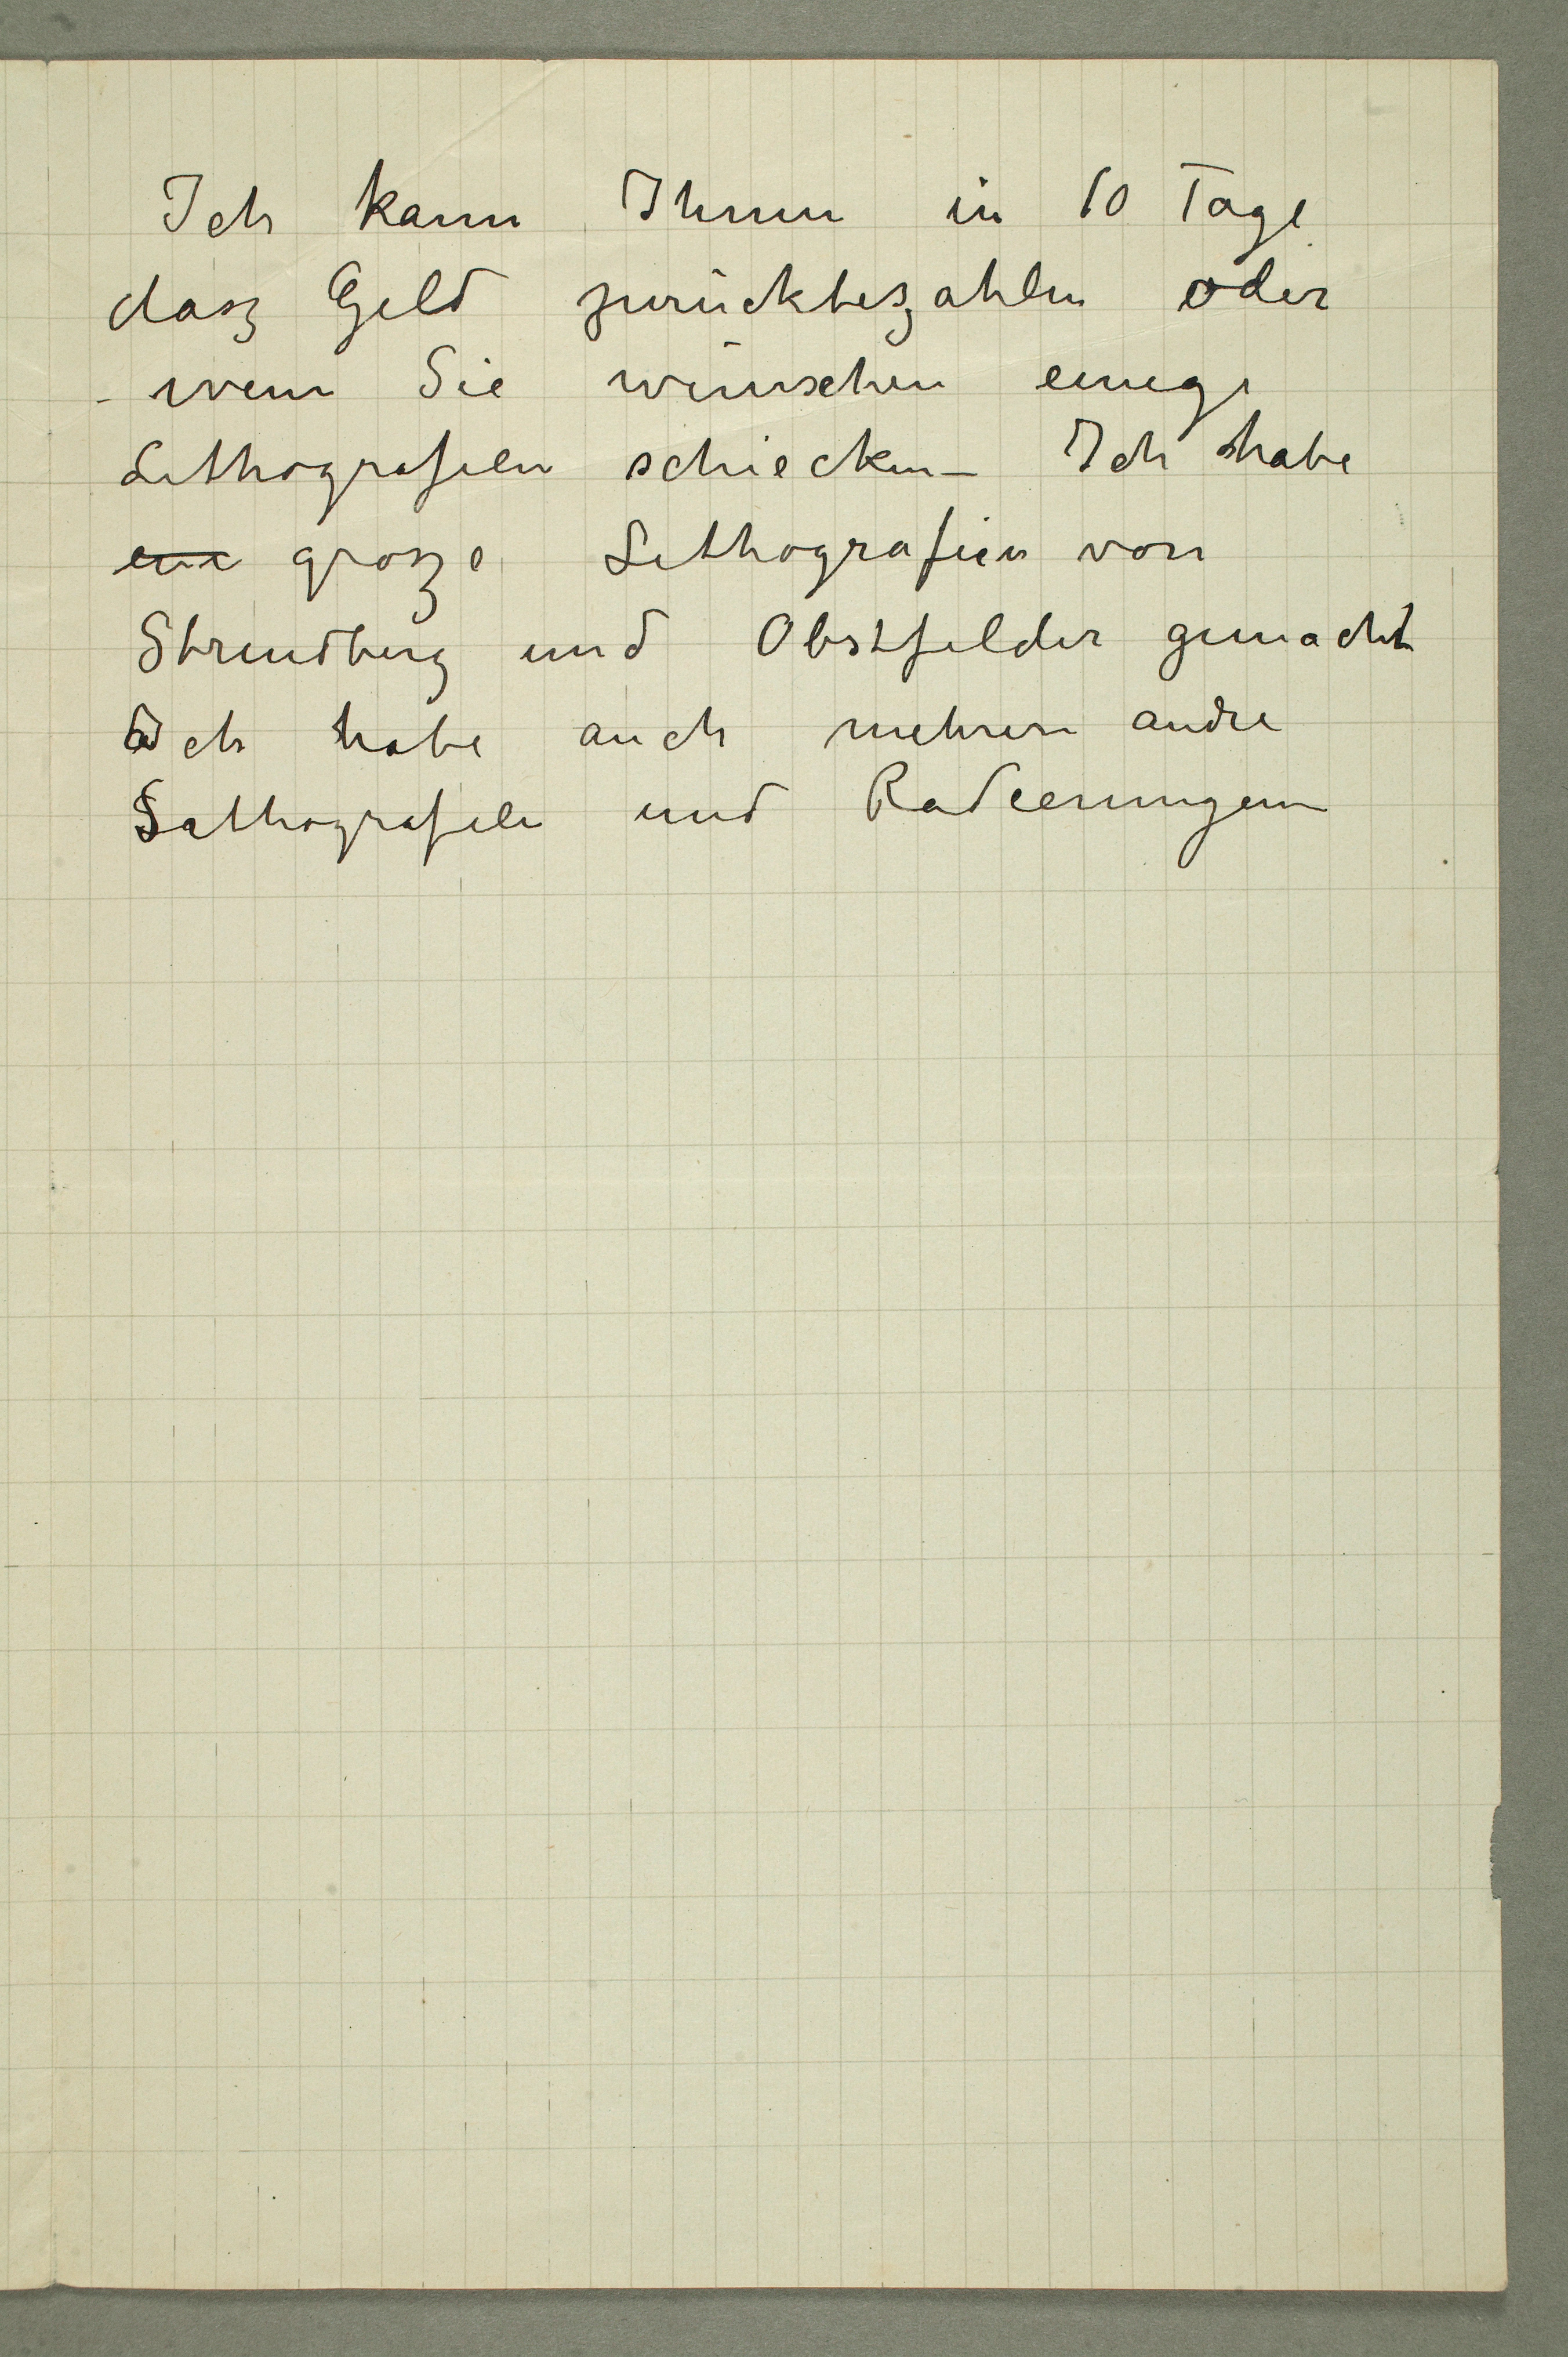 Ich kann Ihnen in 10 Tage
dasz Geld zurückbezahlen oder
– wenn Sie wünschen einige
Lithografien schiecken – Ich habe
eine grosze Lithografien von
Strindberg und Obstfelder gemacht
Ich habe auch mehrere andre
Lithografien und Radierungen